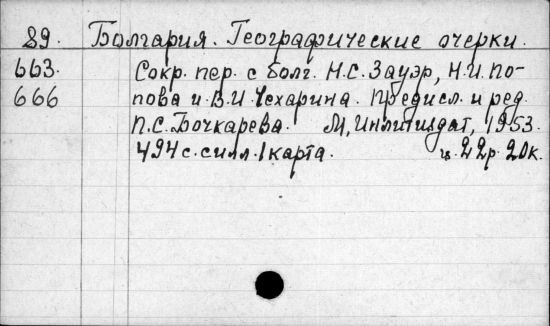 89. Болгария. Географические очерки.
663. Сокр. пер. с болг. Н.С. Зауэр, Н.И. По-
666 пова и В.И. Чехарина. Предисл. и ред.
П.С. Бочкарева. М, Инлитиздат, 1953.
494 с. с илл. 1 карта. ц. 22р. 20к.